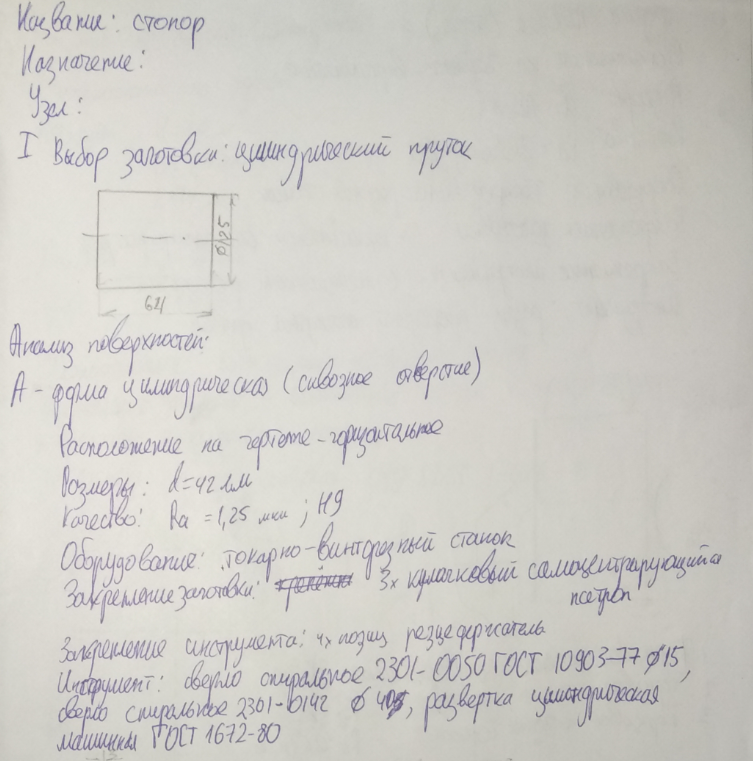 Название: стопор
Назначение:
Узел:
I Выбор заготовки: цилиндрический пруток
⌀125
64
Анализ поверхностей:
А - форма цилиндрическая (сквозное отверстие)
Расположение на чертеже - горизонтальное
Размеры: d=42 мм
Качество: Ra = 1,25 мкм ; H9
Оборудование: токарно-винторезный станок
Закрепление заготовки: 3х кулачковый самоцентрирующийся
патрон
Закрепление инструмента: 4х позиц резцедержатель
Инструмент: сверло спиральное 2301-0050 ГОСТ 10903-77 ⌀15,
сверло спиральное 2301-0142 ⌀, развертка цилиндрическая
машинная ГОСТ 1672-80